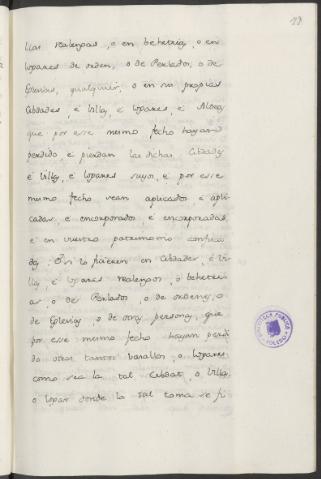 19
llas realengas, o en behetria, o en
lugares de orden, o de Perlados, o de
Eglesias, qualquier, o en sus propias
Cibdades é Villas, é Lugares, é Aldeas
que por esse mesmo fecho hayan
perdido é pierdan las dichas Cibdades
é Villas, é Lugares suyos, é por esse
mismo fecho sean aplicados é apli
cadas, é encorporados, é encorporadas,
é en vuestro patrimonio confisca
das: O si lo ficieren en Cibdades, é Vi
llas, é Lugares realengos, o behetri
as, o de Perlados, o de ordenes, o
de Eglesias, o de otras personas, que
por esse mesmo fecho hayan perdi
do otros tantos vasallos, o Lugares
como sea la tal Cibdat, o Villa,
o Lugar donde la tal toma se fi
BIBLIOTECA PUBLICA
TOLEDO